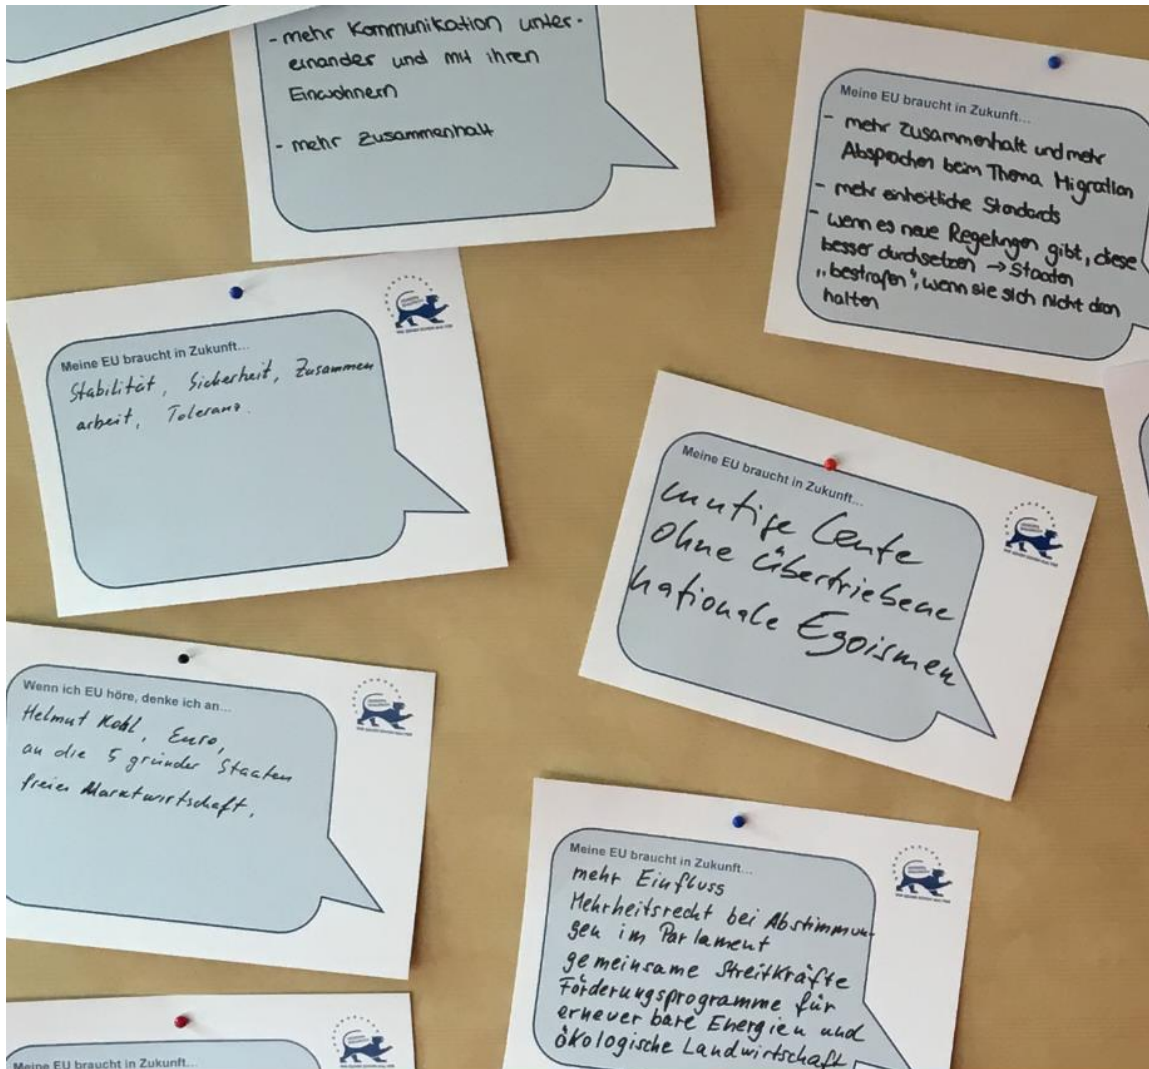 - mehr Kommunikation unter-
einander und mit ihren
Einwohnern
- mehr Zusammenhalt
Meine EU braucht in Zukunft...
- mehr Zusammenhalt und mehr
Absprachen beim Thema Migration
- mehr einheitliche Standards
- wenn es neue Regelungen gibt, diese
besser durchsetzen → Staaten
„bestrafen", wenn sie sich nicht dran
halten
Meine EU braucht in Zukunft...
Stabilität, Sicherheit, Zusammen
arbeit, Toleranz.
Meine EU braucht in Zukunft...
mutige Leute
ohne übertriebene
nationale Egoismen
Wenn ich EU höre, denke ich an...
Helmut Kohl, Euro,
an die 5 gründer Staaten
freier Marktwirtschaft.
Meine EU braucht in Zukunft...
mehr Einfluss
Mehrheitsrecht bei Abstimmun-
gen im Parlament
gemeinsame Streitkräfte
Förderungsprogramme für
erneuerbare Energien und
ökologische Landwirtschaft
Meine EU braucht in Zukunft...